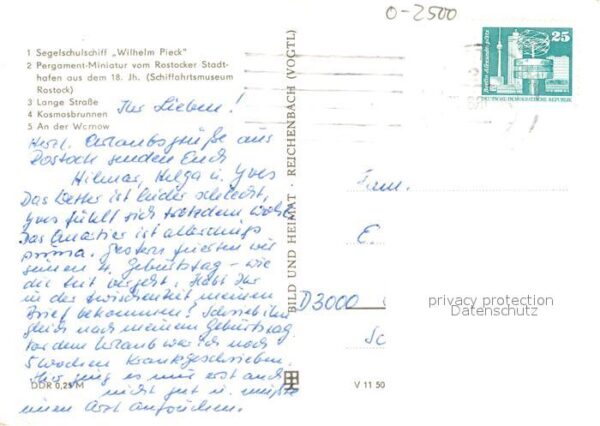 0-2500
25
Berlin-Alexanderplatz
DEUTSCHE DEMOKRATISCHE REPUBLIK
1 Segelschulschiff „Wilhelm Pieck"
2 Pergament-Miniatur vom Rostocker Stadt-
hafen aus dem 18. Jh. (Schiffahrtsmuseum
Rostock)
3 Lange Straße
4 Kosmosbrunnen
5 An der Warnow
Ihr Lieben!
Herzl. Urlaubsgrüße aus
Rostock senden Euch
Hilmar, Helga u. Yves
Das Wetter ist leider schlecht,
Yves fühlt sich trotzdem wohl.
Das Quartier ist allerdings
prima. Gestern feierten wir
seinen 4. Geburtstag – wie
die Zeit vergeht. Habt Ihr
in der Zwischenzeit meinen
Brief bekommen? Schrieb ihn
gleich nach meinem Geburtstag.
Vor dem Urlaub war ich noch
5 Wochen krankgeschrieben.
Hier ging es mir erst auch
nicht gut u. mußte
einen Arzt aufsuchen.
DDR 0,25 M
BILD UND HEIMAT · REICHENBACH (VOGTL)
V 11 50
Fam.
E
D3000
Sc
privacy protection
Datenschutz